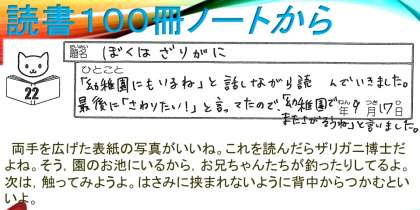 読書１００冊ノートから
22
題名 ぼくは ざりがに
ひとこと
「幼稚園にもいるね」と 話しながら読 んでいきました。
最後に「さわりたい！」と言ってたので、「幼稚園で
またさがそうね」と言いました。
年 9 月 17 日
両手を広げた表紙の写真がいいね。これを読んだらザリガニ博士だ
よね。そう，園のお池にいるから，お兄ちゃんたちが釣ったりしてるよ。
次は，触ってみようよ。はさみに挟まれないように背中からつかむとい
いよ。